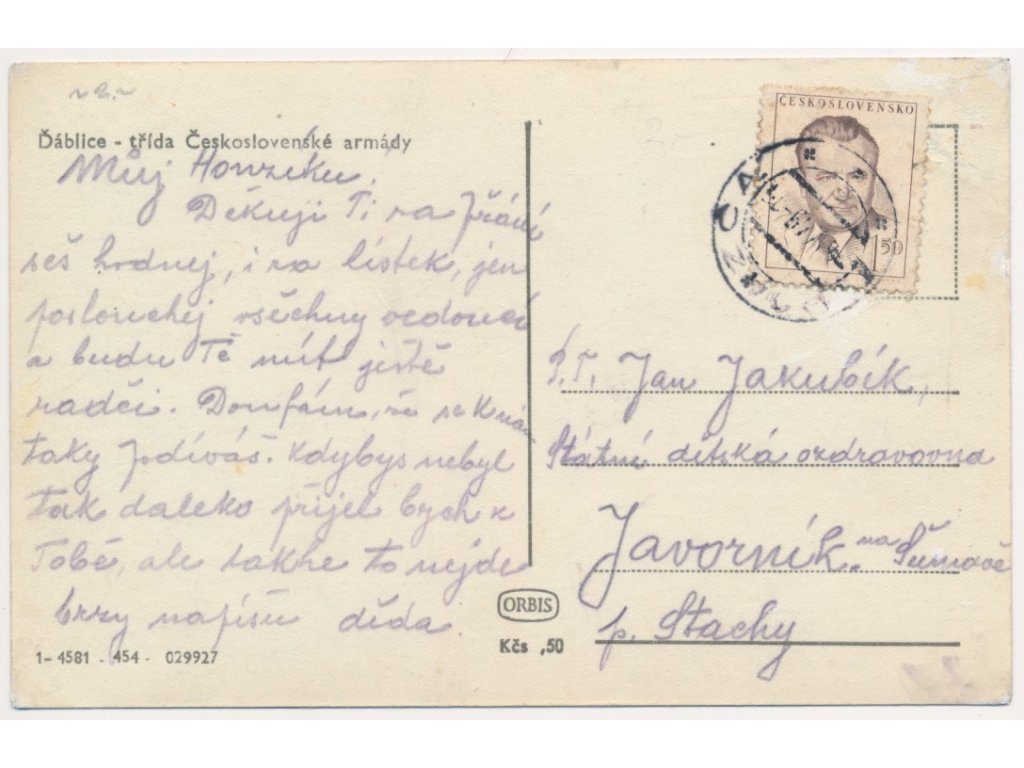 ~ 2.~
Ďáblice - třída Československé armády
Můj Honzíku.
Děkuji Ti za přání
seš hodnej, i za lístek, jen
poslouchej všechny
a budu Tě mít ještě
radči. Doufám, že se k nám
taky podíváš. Kdybys nebyl
tak daleko přijel bych k
Tobě, ale takhle to nejde
brzy napíšu děda.
1- 4581 - 454 - 029927
ORBIS
Kčs ,50
ČESKOSLOVENSKO
50
Jan Jakubík,
Státní dětská ozdravovna
Javorník na Šumavě
p. Stachy